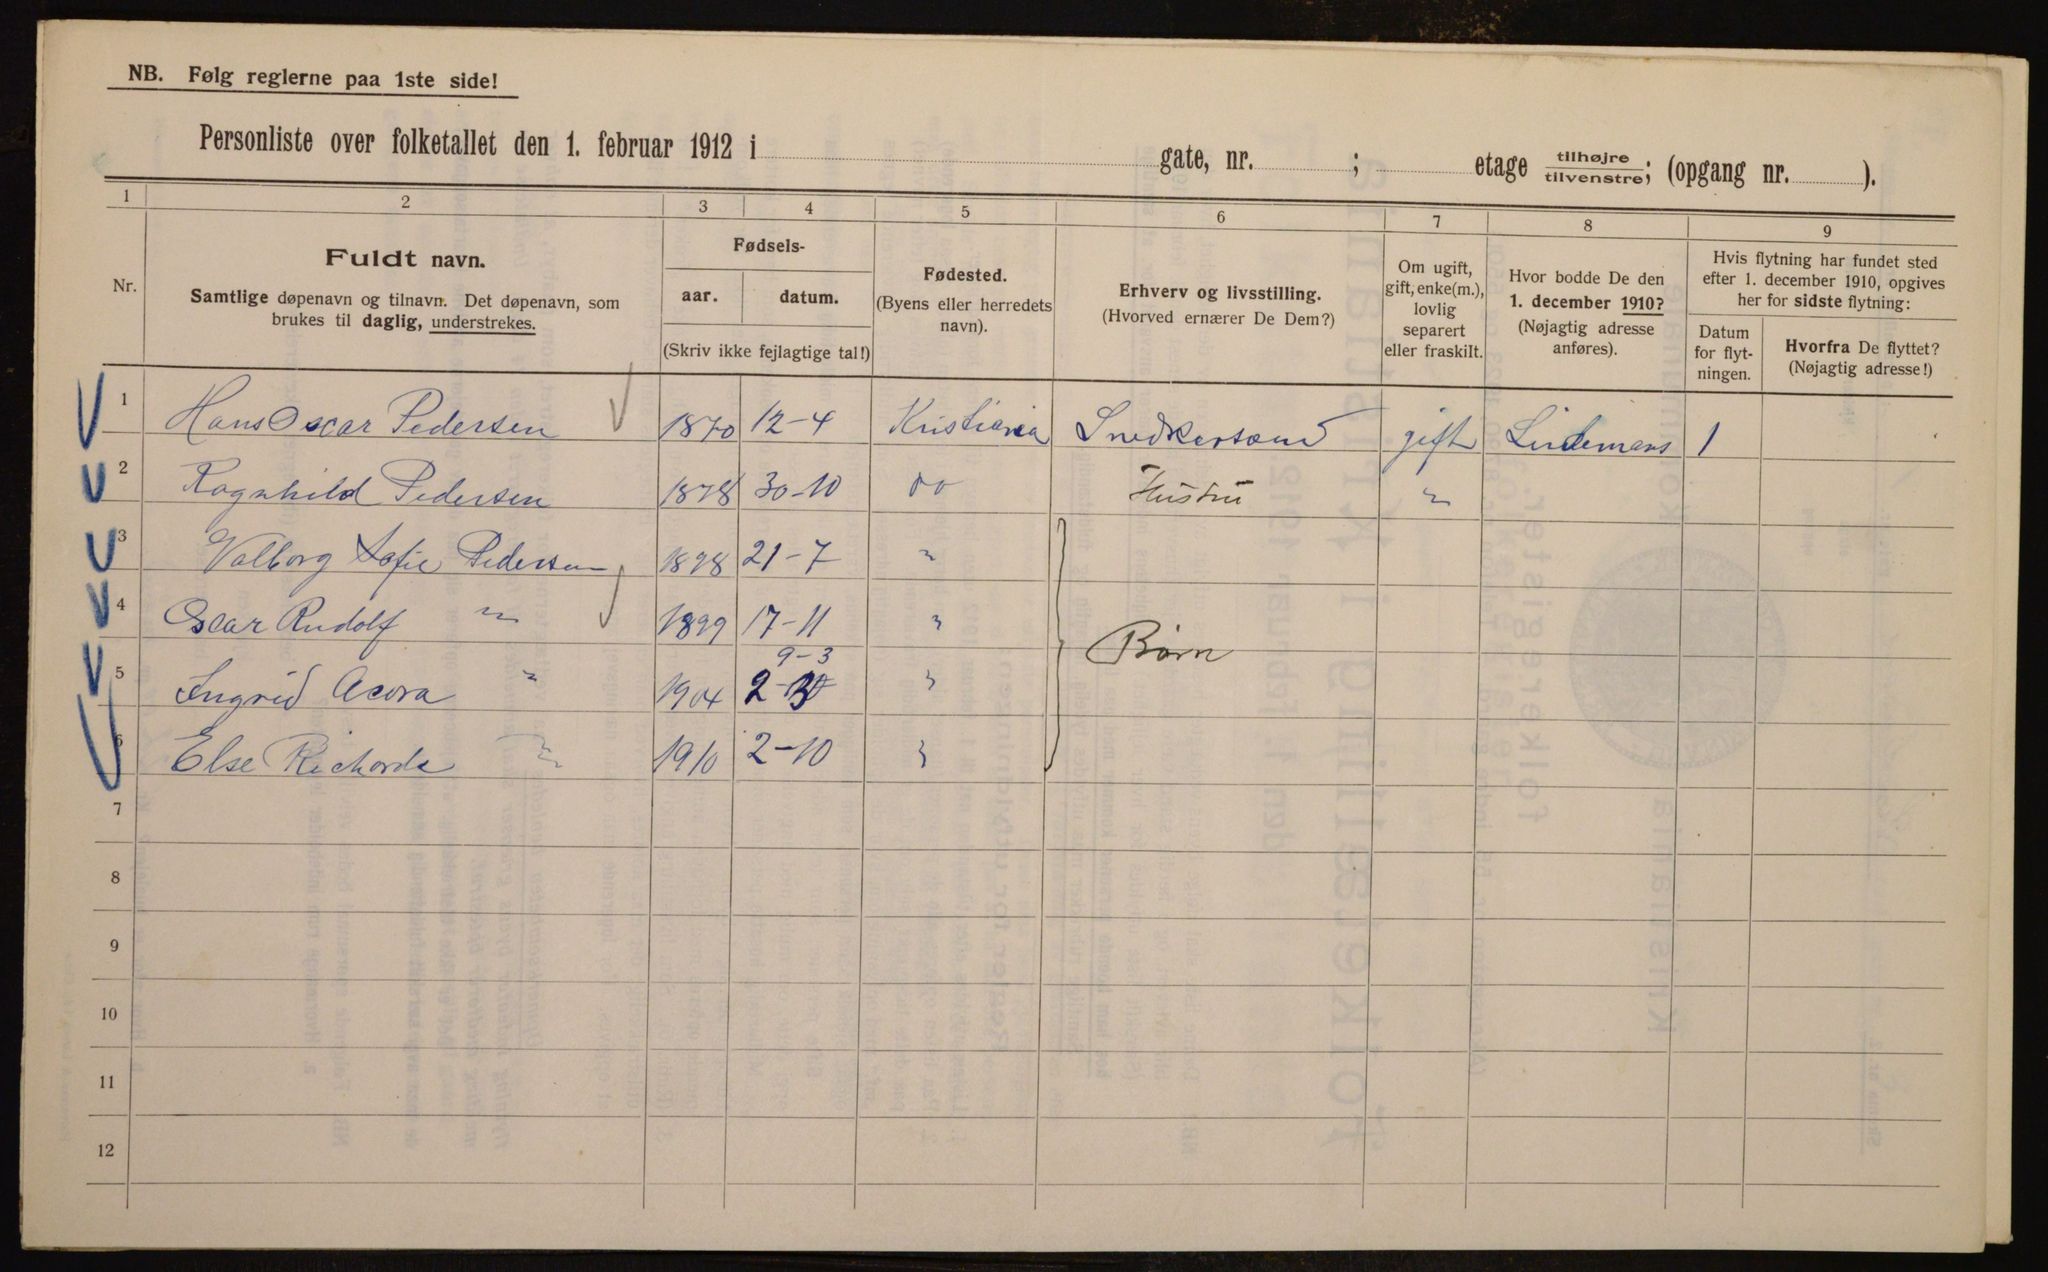 NB. Følg reglerne paa 1ste side!
Personliste over folketallet den 1. februar 1912 i gate, nr. ; etage tilhøjre tilvenstre; (opgang nr. ).
1 2 3 4 5 6 7 8 9
Nr.
Fuldt navn.
Samtlige døpenavn og tilnavn. Det døpenavn, som
brukes til daglig, understrekes.
Fødsels-
aar. datum.
(Skriv ikke fejlagtige tal!)
Fødested.
(Byens eller herredets
navn).
Erhverv og livsstilling.
(Hvorved ernærer De Dem?)
Om ugift,
gift, enke(m.),
lovlig
separert
eller fraskilt.
Hvor bodde De den
1. december 1910?
(Nøjagtig adresse
anføres).
Hvis flytning har fundet sted
efter 1. december 1910, opgives
her for sidste flytning:
Datum
for flyt-
ningen.
Hvorfra De flyttet?
(Nøjagtig adresse!)
1 Hans Oscar Pedersen 1870 12-4 Kristiania gift Lindemans 1
2 Ragnhild Pedersen 1878 30-10 do Hustru "
3 Valborg Sofie Pedersen 1898 21-7 "
4 Oscar Rudolf " 1899 17-11 "
Børn
9-3
5 Ingrid " 1904 "
6 Else " 1910 2-10 "
7
8
9
10
11
12